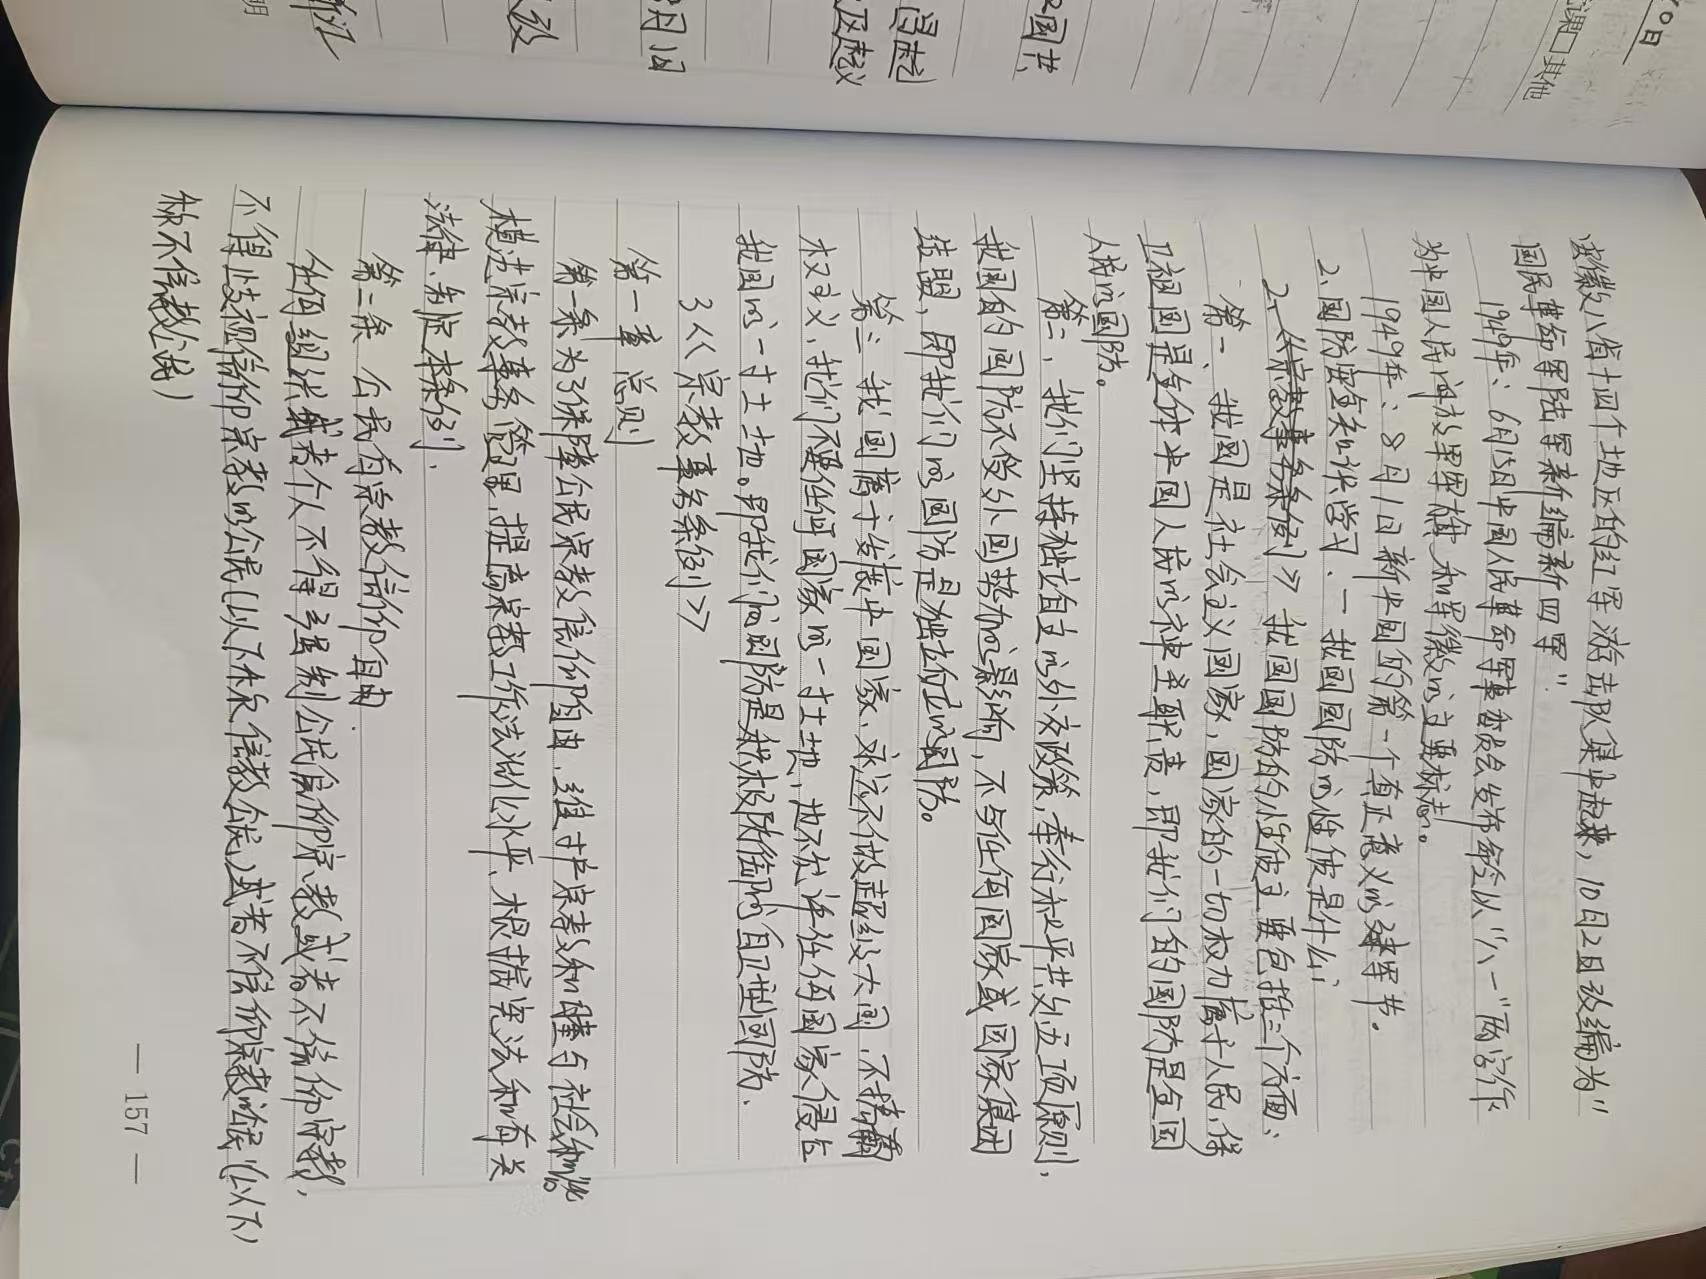 20日
课□其他
国共
及起义
月1日
改
安徽八省十四个地区的红军游击队集中起来,10月2日改编为"
国民革命军陆军新编新四军".
1949年:6月15日中国人民革命军事委员会发布命令以"八一"两字作
为中国人民解放军军旗和军徽的主要标志。
1949年、8月1日新中国的第一个真正意义的建军节。
2、国防安全知识学习.一我国国防的性质是什么
2、《宗教事务条例》我国国防的性质主要包括三个方面:
第一、我国是社会主义国家,国家的一切权力属于人民,保
卫祖国是每个中国人民的神圣职责,即我们的国防是全国
人民的国防。
第二、我们坚持独立自主的外交政策,奉行和平共处五项原则,
我国的国防不受外国势力的影响,不与任何国家或国家集团
结盟,即我们的国防是独立自主的国防。
第三 我国属于发展中国家、永远不做超级大国,不搞霸
权主义,我们不要任何国家的一寸土地,也不允许任何国家侵占
我国的一寸土地。即我们的国防是积极防御的自卫型国防.
3《宗教事务条例》
第一章 总则
第一条为了保障公民宗教信仰自由,维护宗教和睦与社会和谐
规范宗教事务管理,提高宗教工作法治化水平、根据宪法和有关
法律、制定本条例.
第二条 公民有宗教信仰自由.
任何组织或者个人不得强制公民信仰宗教或者不信仰宗教,
不得歧视信仰宗教的公民(以下称信教公民)或者不信仰宗教的公民(以下
称不信教公民)
— 157 —